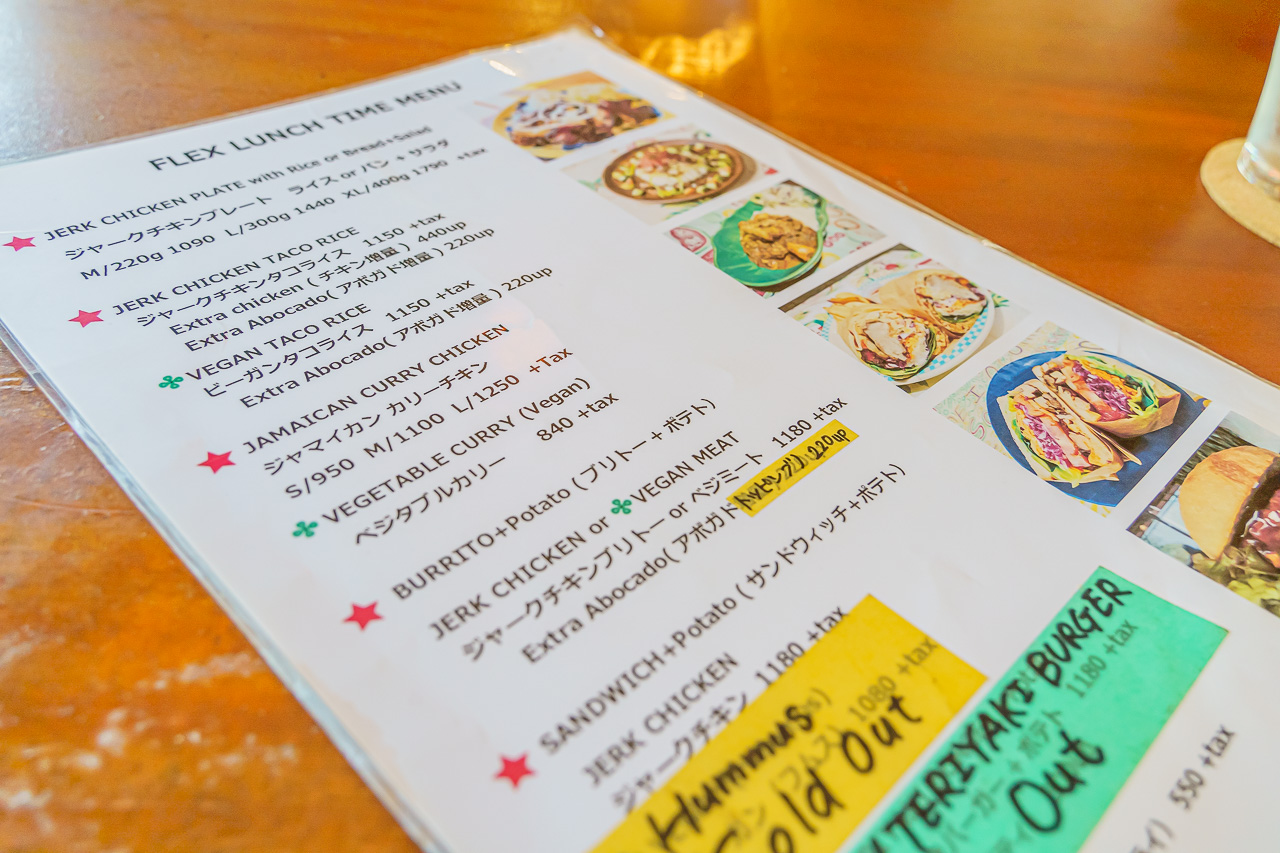 FLEX LUNCH TIME MENU
JERK CHICKEN PLATE with Rice or Bread+Salad
ジャークチキンプレート ライス or パン + サラダ
M/220g 1090 L/300g 1440 XL/400g 1790 +tax
JERK CHICKEN TACO RICE
ジャークチキンタコライス 1150 +tax
Extra chicken ( チキン増量 ) 440up
Extra Abocado( アボガド増量 ) 220up
VEGAN TACO RICE
ビーガンタコライス 1150 +tax
Extra Abocado( アボガド増量 ) 220up
JAMAICAN CURRY CHICKEN
ジャマイカン カリーチキン
S/950 M/1100 L/1250 +Tax
VEGETABLE CURRY (Vegan)
ベジタブルカリー 840 +tax
BURRITO+Potato ( ブリトー + ポテト)
JERK CHICKEN or VEGAN MEAT
ジャークチキンブリトー or ベジミート 1180 +tax
Extra Abocado( アボガド トッピング) 220up
SANDWICH+Potato ( サンドウィッチ+ポテト)
JERK CHICKEN
ジャークチキン 1180 +tax
Hummus
1080 +tax
Sold Out
TERIYAKI BURGER
バーガー + ポテト 1180 +tax
Out
550 +tax